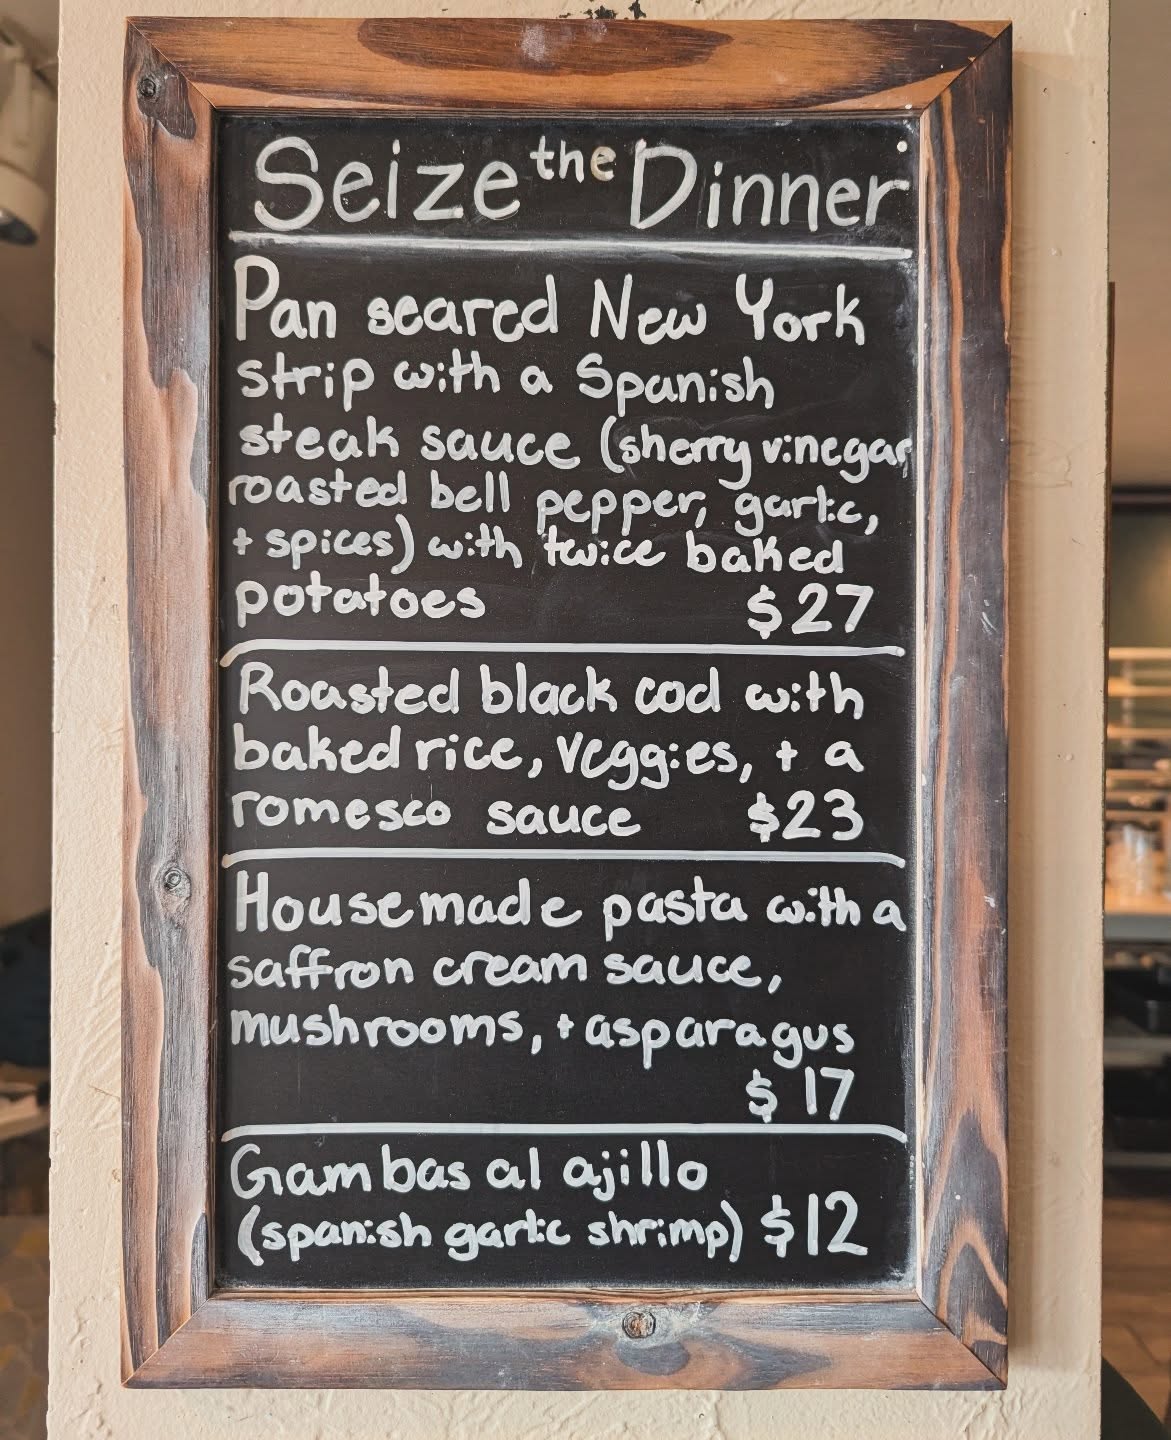 Seize the Dinner
Pan seared New York
strip with a Spanish
steak sauce (sherry vinegar
roasted bell pepper, garlic,
+ spices) with twice baked
potatoes $27
Roasted black cod with
baked rice, veggies, + a
romesco sauce $23
Housemade pasta with a
saffron cream sauce,
mushrooms, + asparagus
$17
Gambas al ajillo
(spanish garlic shrimp) $12